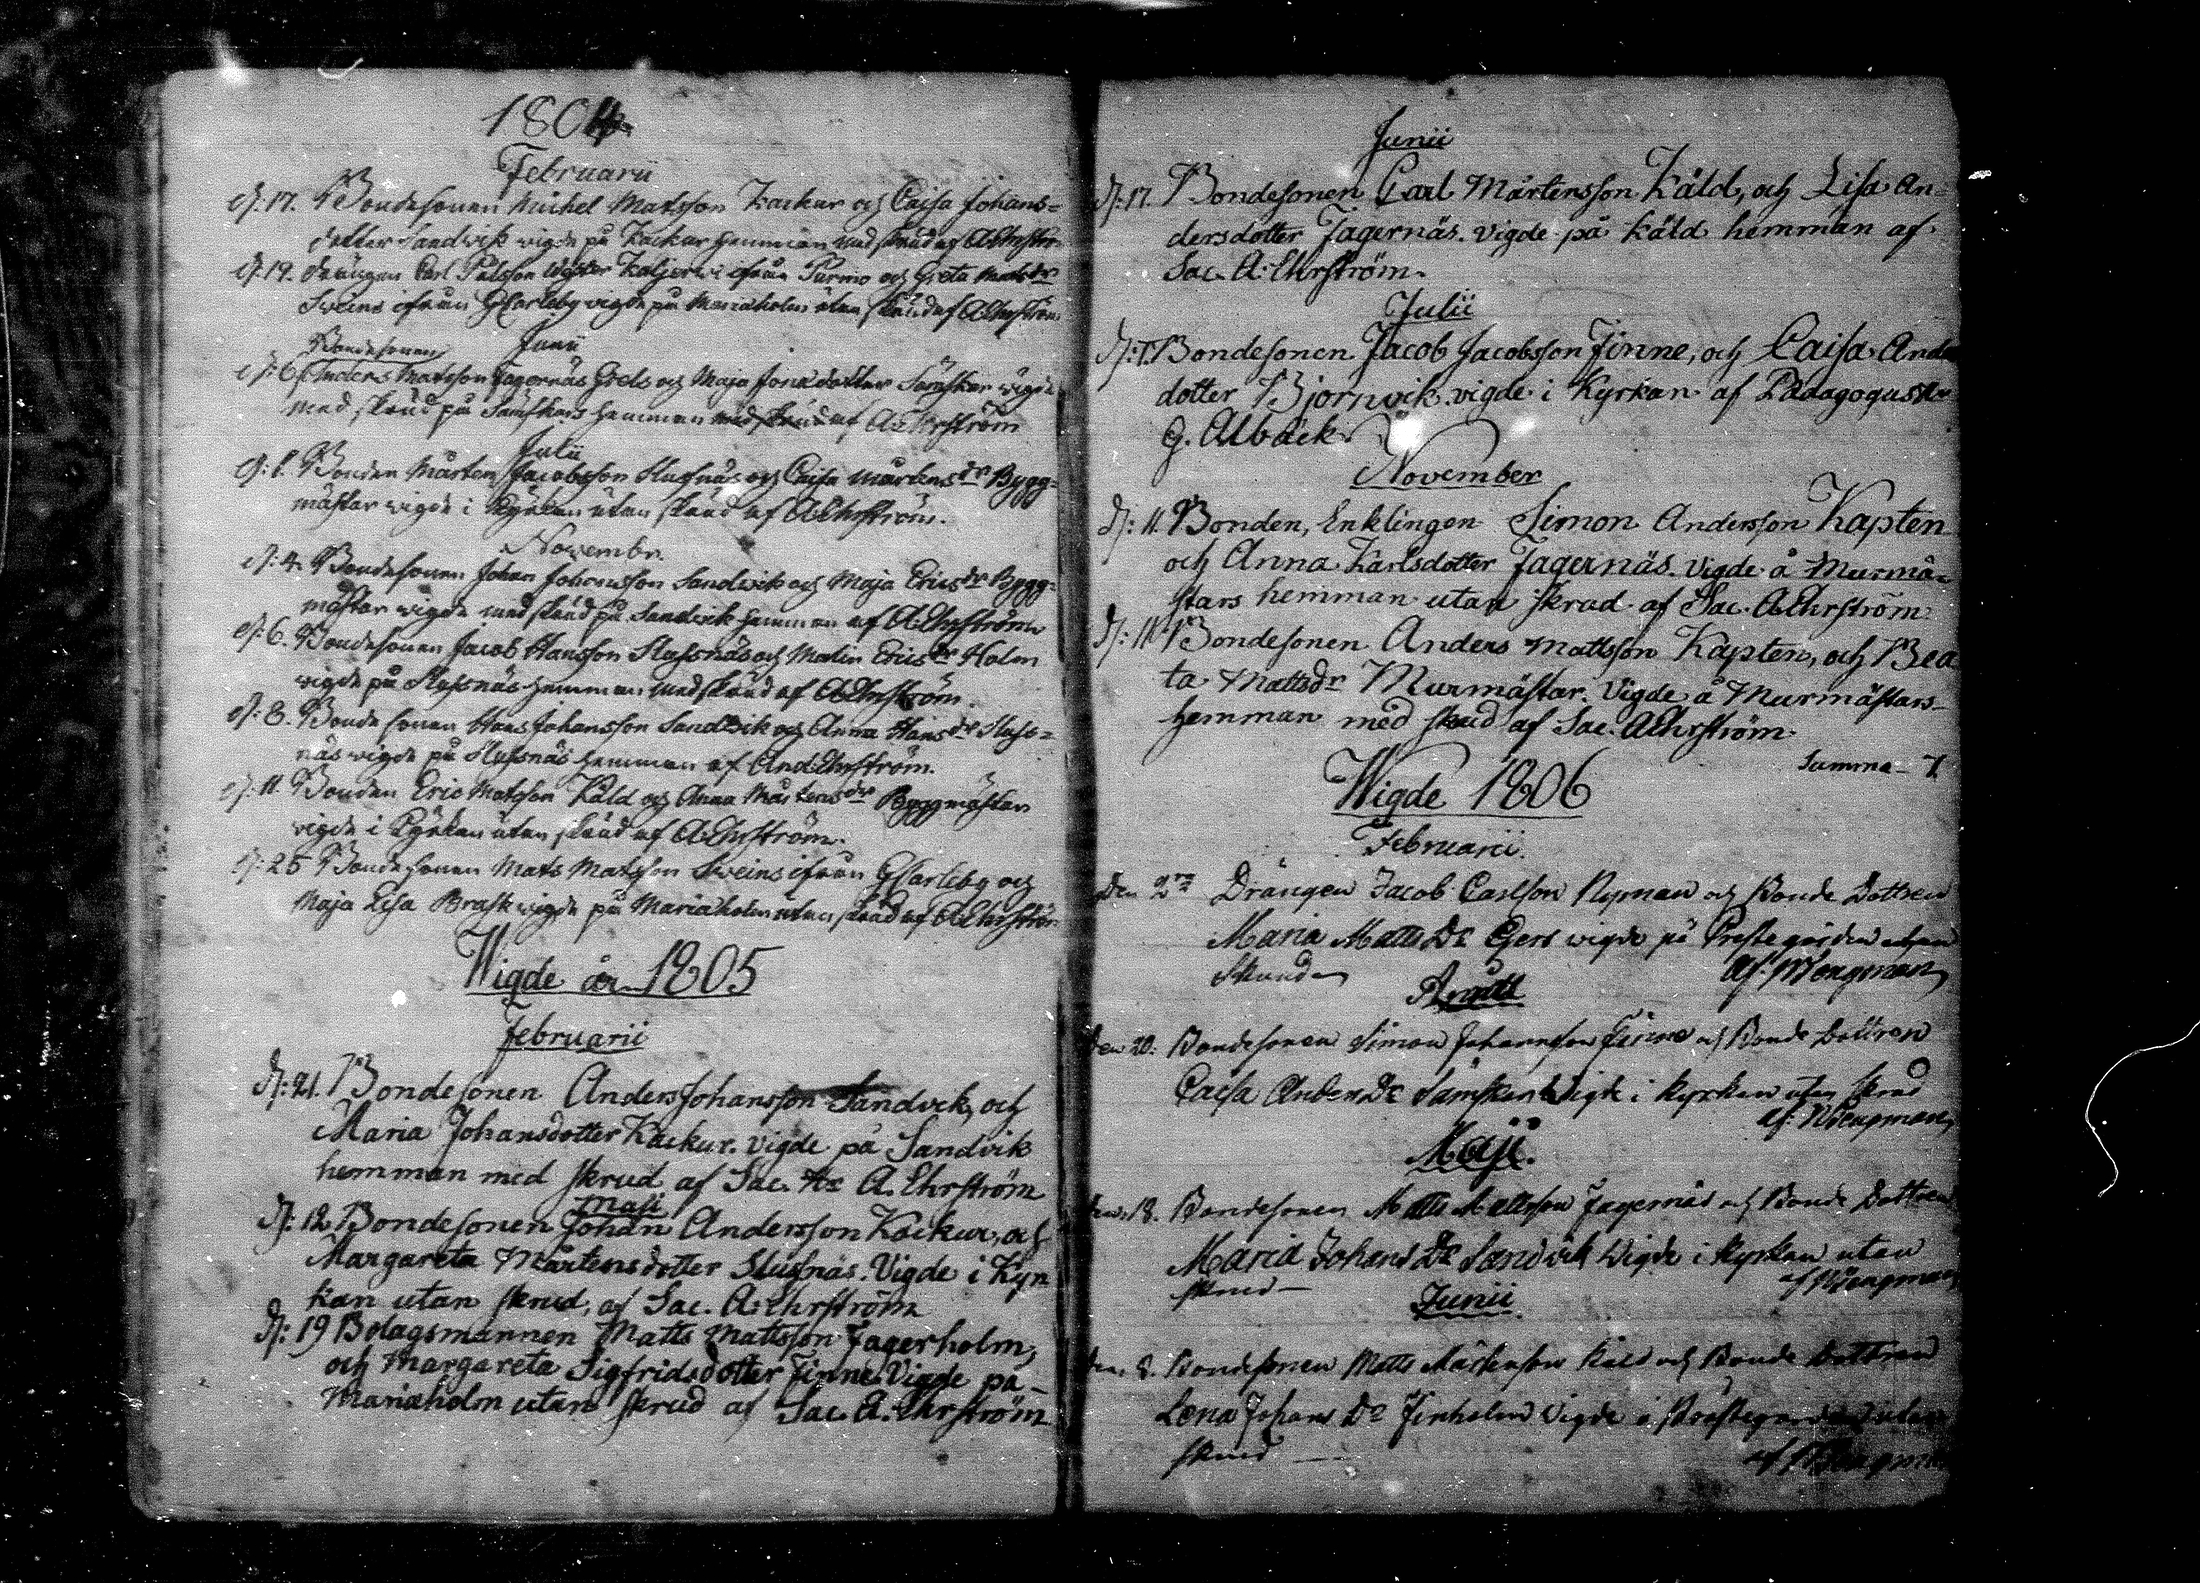 1804
Februarii
d: 17. Bondesonen Michel Matsson Kackur och Caisa Johans=
dotter Sandwik wigde på Kackur hemman med skrud af A:Ehrström
d: 19. Drängen Carl Pålsson Wäster Kaljerwi ifrån Purmo och Greta Matsdr
Sweins ifrån GCarleby wigde på Mariæholm utan skrud af A:Ehrström
Bondesonen Junii
d: 6. Anders Matsson Fagernäs Grels och Maja Jonædotter Sämskar wigde
med skrud på Sämskars hemman med skrud af A:Ehrström
Julii
d: 1. Bonden Mårten Jacobsson Slussnäs och Caisa Mårtensdr Bygg=
mästar wigde i Kyrkan utan skrud af A:Ehrström.
Novembr.
d: 4. Bondesonen Johan Johansson Sandwik och Maja Ericsdr Bygg=
mästar wigde med skrud på Sandwik hemman af A:Ehrström
d: 6. Bondesonen Jacob Hansson Slussnäs och Malin Ericsdr Holm
wigde på Slussnäs hemman med skrud af A:Ehrström.
d: 8. Bondesonen Hans Johansson Sandwik och Anna Hansdr Sluss=
näs wigde på Slussnäs hemman af And:Ehrström.
d: 11. Bonden Eric Matsson Käld och Anna Mårtensdr Byggmästar
wigde i Kyrkan utan skrud af A:Ehrström.
d: 25 Bondesonen Mats Matsson Sweins ifrån GCarleby och
Maja Lisa Brask wigde på Mariæholm utan skrud af A:Ehrström
Wigde år 1805
Februarii
d: 21. Bondesonen Anders Johansson Sandvik, och
Maria Johansdotter Kackur. vigde på Sandvik
hemman med skrud af Sac. A. Ehrström
Maji
d: 12. Bondesonen Johan Andersson Kackur, och
Margareta Mårtensdotter Slusnäs. Vigde i Kyr
kan utan skrud, af Sac. A: Ehrström
d: 19 Bolagsmannen Matts Mattsson Fagerholm,
och Margareta Sigfridsdotter Finne. Vigde på
Mariæholm utan skrud af Sac. A. Ehrström
Junii
d: 17. Bondesonen Carl Mårtensson Käld, och Lisa An=
dersdotter Fagernäs. vigde på käld hemman af
Sac. A: Ehrström.
Julii
d: 7. Bondesonen Jacob Jacobsson Finne, och Caisa Anders
dotter Bjornvik. vigde i Kyrkan af Pædagogus
G. Albäck
November
d: 11. Bonden, Enklingen Simon Andersson Kapten
och Anna Karlsdotter Fagernäs. vigde å Murmä=
stars hemman utan skrud af Sac. A:Ehrström
d: 11 Bondesonen Anders Mattsson Kapten, och Bea
ta Mattsdr Murmästar. Vigde å Murmästars
hemman med skrud af Sac. A:Ehrström.
Summa- 7.
Wigde 1806
Februarii.
Den 2 Drängen Jacob Carlsson Nyman och Bonde Dottren
Maria Matts Dr Gers wigde på Prästegården utan
Skrud af: Wengman
den 20. Bondesonen Simon Johansson Finne och Bonde dottren
Caisa Anders Dr Sämskar Wigde i kyrkan utan skrud
af: Wengman
Maji.
den: 18. Bondesonen Matts Mattsson Fagernäs och Bonde Dottren
Maria Johans Dr Sandvik wigde i kyrkan utan
skrud— af Wengman
Junii
den. 8. Bondesonen Matts Mårtensson Käld och Bonde dottren
Lena Johans Dr Finholm vigde i Prästegården utan
skrud — af Wengman